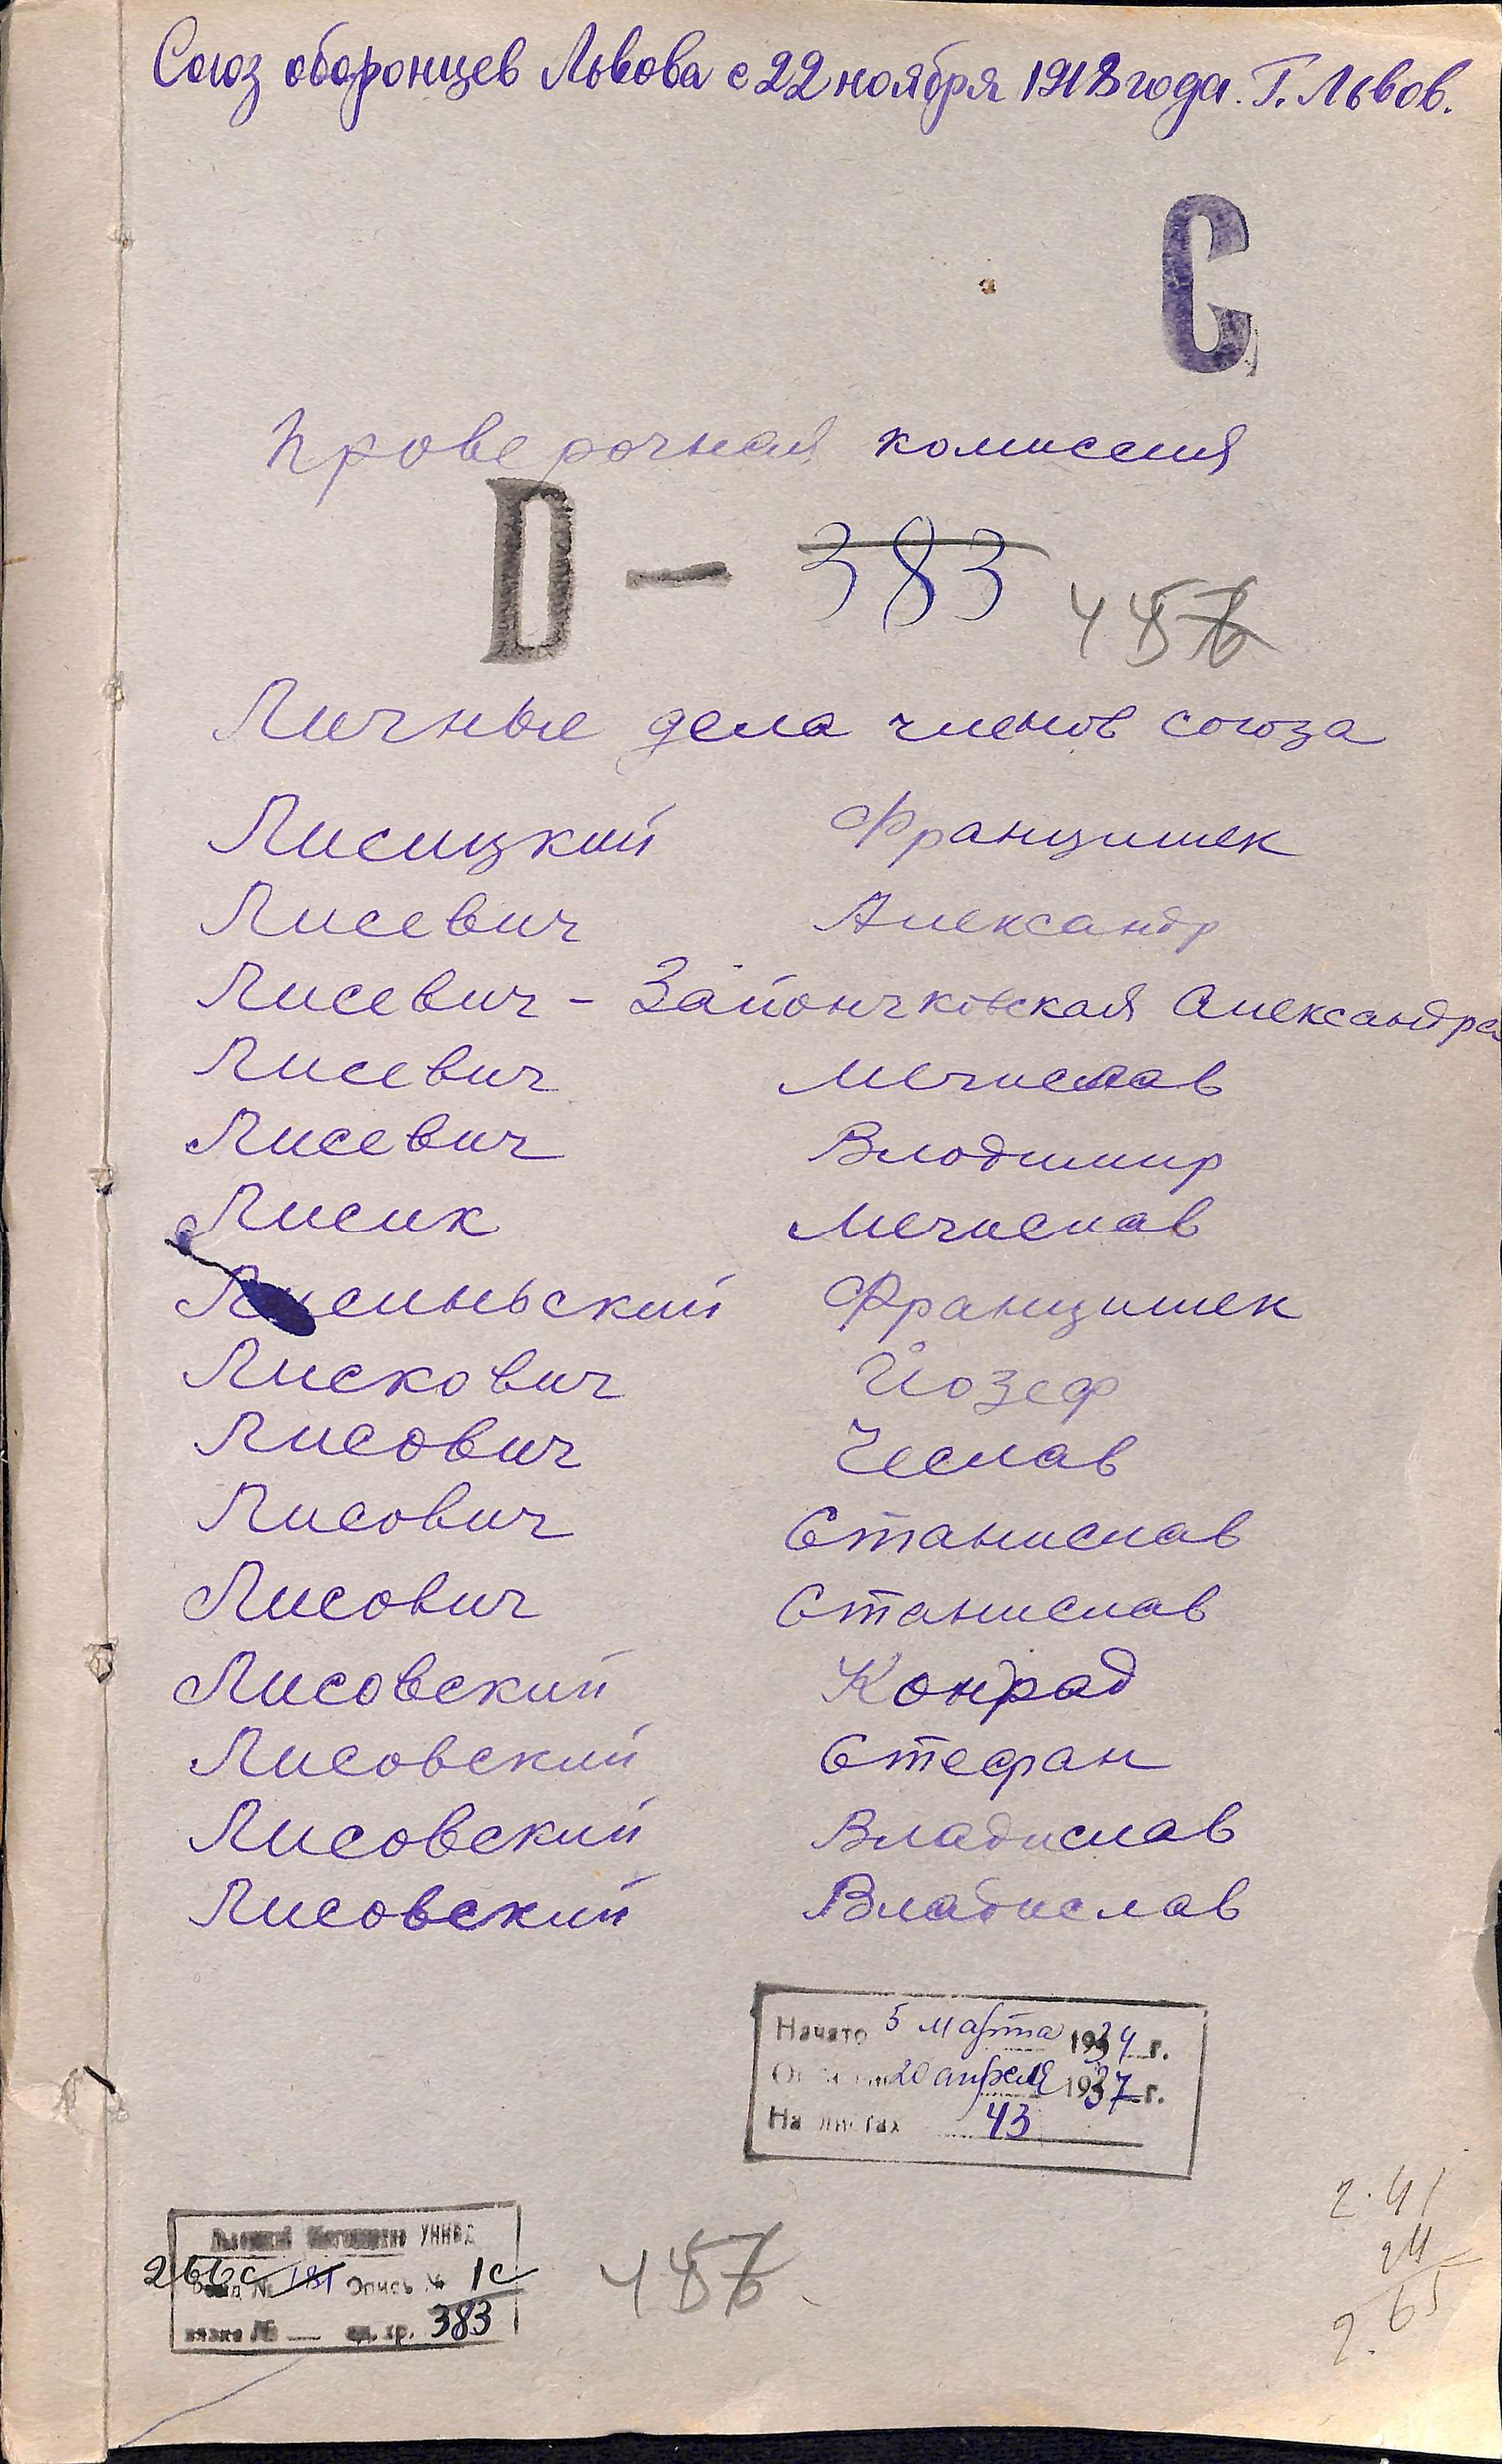 Союз оборонцев Львова с 22 ноября 1918 года. Г. Львов.
С
Проверочная комиссия
D — 383
Личные дела членов союза
Лисицкий Францишек
Лисевич Александр
Лисевич - Зайончковская Александра
Лисевич Мечислав
Лисевич Влодимир
Лисик Мечислав
Лисиньский Францишек
Лискович Йозеф
Лисович Чеслав
Лисович Станислав
Лисович Станислав
Лисовский Конрад
Лисовский Стефан
Лисовский Владислав
Лисовский Владислав
Начато 5 марта 1934 г.
20 апреля 1937 г.
На листах 43
УНКВД
266с 181 Опись № 1с
ед. хр. 383
2.41
24
2.65